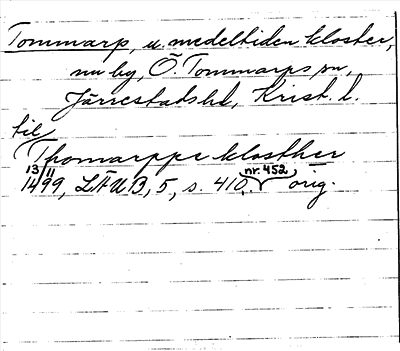 Tommarp, u. medeltiden kloster,
nu by, Ö. Tommarps sn,
Järrestads hd, Krist. l.
til
Thomarppe klosther
13/11
1499, LÄUB, 5, s. 410, nr. 452 orig.